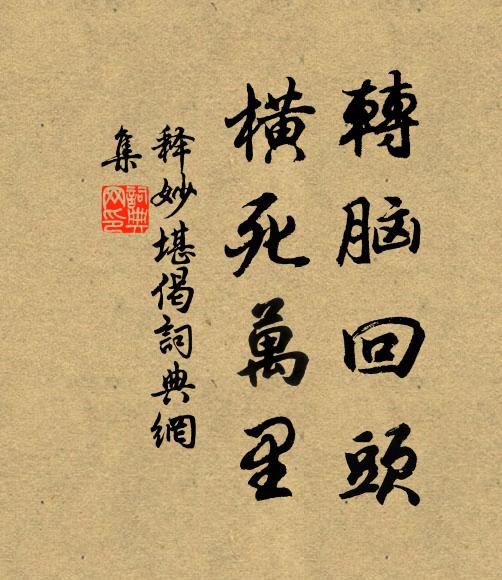 轉脑回頭
橫死萬里
释妙堪偈詞典網
集
詞典
网印